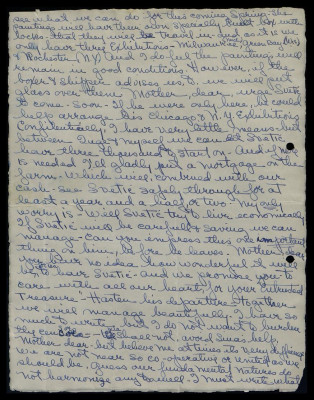 see what we can do for this coming Spring. The
paintings will have their own specially built box with
locks. that they will be travel in - and as it is we
only have three Exhibitions - Milwaukee, Green Bay (Wis)
& Rochester, (N.Y.) And I do feel the paintings will
remain in good condition. However, if the
boxer & shipper advises us to, we will put
glass over them! Mother dear, urge Svetic
to come - Soon - If he were only here, he could
help arrange his Chicago & N.Y. Exhibitions
Confidentially, I have very little means - but
between and myself we can let Svetic
have three thousand to start on. And if more
is needed I'll gladly put a mortgage on the
farm - Which will, combined with our
cash - see Svetic safely through for at
least a year and a half or two - My only
worry is - Will Svetic try to live economically
If Svetic will be careful & saving we can
manage - can you impress this one important
thing on him before he leaves - Mother dear
you have no idea how wonderful it will
be to have Svetic - and we promise you to
care with all our heart for your intrusted
Treasure - Hasten his departure - Together
we will manage beautifully - I have so
much to write, but I do not want to burden
thy
shall not, avoid help
Mother dear - but believe me at times its very difficult
We are not near so co-operative or united as we
should be. Guess our fundamental natures do
not harmonize any too well - I must write what